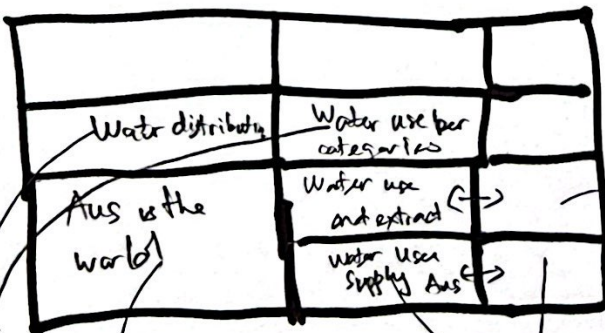 Watr distributn
Water use per
categories
Aus vs the
world
Water use
and extract
Water Use
Supply Aus